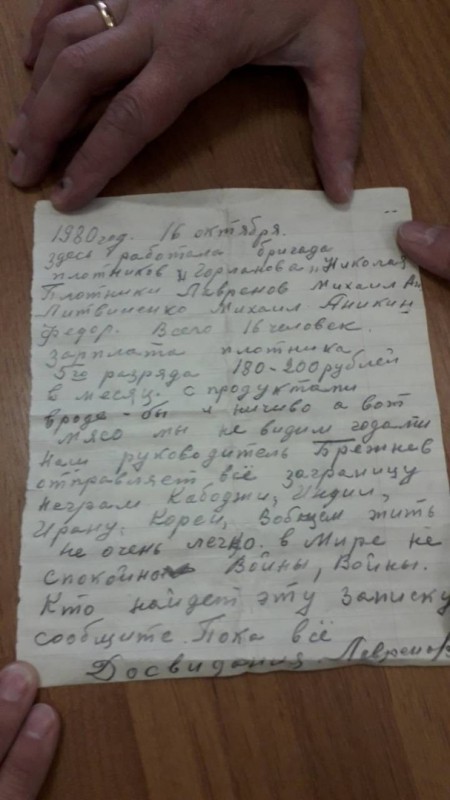 1980 год. 16 октября.
здесь работала бригада
плотников „Горланова„ Николая
Плотники Лавренов Михаил Ан
Литвиненко Михаил Аникин
Федор. Всего 16 человек.
Зарплата плотника
5го разряда 180-200 рублей
в месяц. с продуктами
вроде-бы и ничиво а вот
мясо мы не видим годами
Наш руководитель Брежнев
отправляет всё заграницу
неграм Кабоджи, Индии,
Ирану. Кореи, Вобщем жить
не очень легко. в Мире не
спокойно Войны, Войны.
Кто найдет эту записку
сообщите. Пока всё
Досвидания. Лавренов